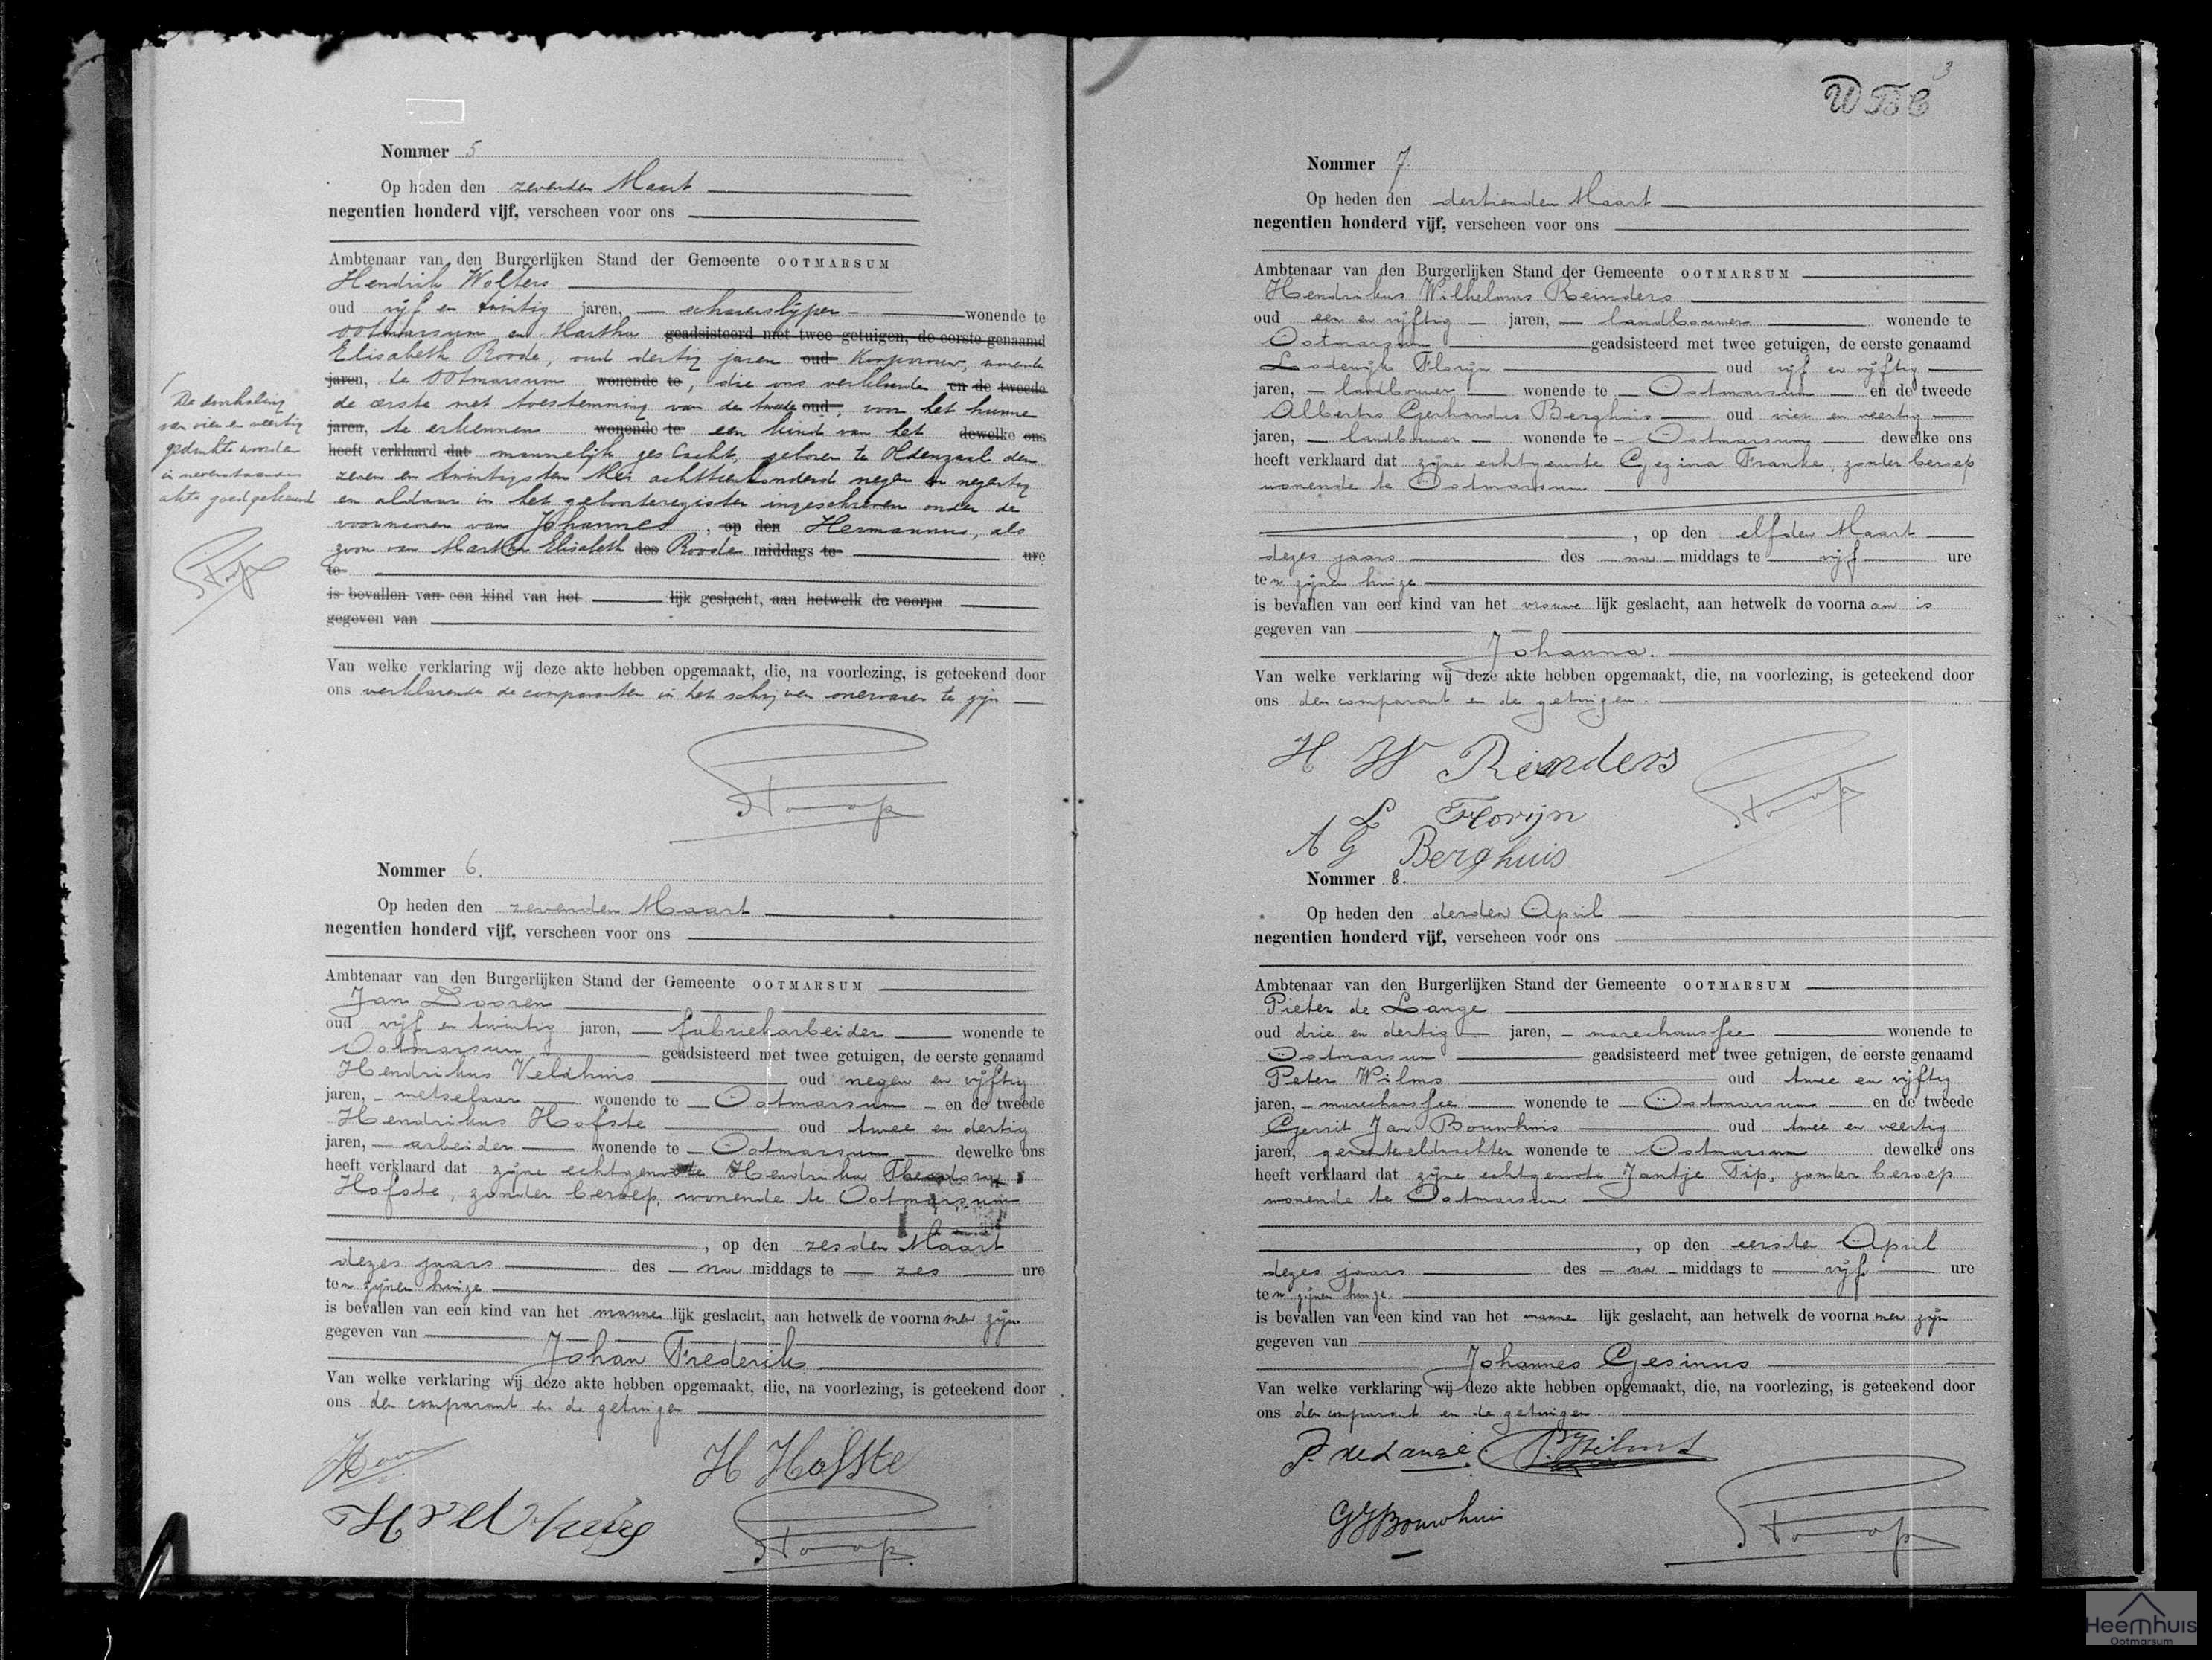 Nommer 5
Op heden den zevenden Maart
negentien honderd vijf, verscheen voor ons
Ambtenaar van den Burgerlijken Stand der Gemeente OOTMARSUM
Hendrik Wolters
oud vijf en twintig jaren, scharenslijper wonende te
Ootmarsum en Martha geadsisteerd met twee getuigen, de eerste genaamd
Elisabeth Roode, oud dertig jaren oud Koopvrouw, wonende
jaren, te Ootmarsum wonende te, die ons verklaarden en de tweede
de eerste met toestemming van de tweede oud, voor het hunne
jaren, te erkennen wonende te een kind van het dewelke ons
heeft verklaard dat mannelijk geslacht, geboren te Oldenzaal den
zeven en twintigsten Mei achttienhonderd negen en negentig
en aldaar in het geboorteregister ingeschreven onder de
voornamen van Johannes, op den Hermannus, als
zoon van Martha Elisabeth des Roode middags te ure
te
is bevallen van een kind van het lijk geslacht, aan hetwelk de voorna
gegeven van
Van welke verklaring wij deze akte hebben opgemaakt, die, na voorlezing, is geteekend door
ons verklarende de comparanten in het schrijven onervaren te zijn
De doorhaling
van vier en veertig
gedrukte woorden
in nevenstaande
akte goedgekeurd
Nommer 6.
Op heden den zevenden Maart
negentien honderd vijf, verscheen voor ons
Ambtenaar van den Burgerlijken Stand der Gemeente OOTMARSUM
Jan Dooren
oud vijf en twintig jaren, fabriekarbeider wonende te
Ootmarsum geadsisteerd met twee getuigen, de eerste genaamd
Hendrikus Veldhuis oud negen en vijftig
jaren, metselaar wonende te Ootmarsum en de tweede
Hendrikus Hofste oud twee en dertig
jaren, arbeider wonende te Ootmarsum dewelke ons
heeft verklaard dat zijne echtgenoote Hendrika Theodora
Hofste, zonder beroep, wonende te Ootmarsum
, op den zesden Maart
dezes jaars des na middags te zes ure
ten zijnen huize
is bevallen van een kind van het manne lijk geslacht, aan hetwelk de voorna men zijn
gegeven van
Johan Frederik
Van welke verklaring wij deze akte hebben opgemaakt, die, na voorlezing, is geteekend door
ons den comparant en de getuigen
H Hofste
H Veldhuis
3
Nommer 7.
Op heden den dertienden Maart
negentien honderd vijf, verscheen voor ons
Ambtenaar van den Burgerlijken Stand der Gemeente OOTMARSUM
Hendrikus Wilhelmus Reinders
oud een en vijftig jaren, landbouwer wonende te
Ootmarsum geadsisteerd met twee getuigen, de eerste genaamd
Lodewijk Florijn oud vijf en vijftig
jaren, landbouwer wonende te Ootmarsum en de tweede
Albertus Gerhardus Berghuis oud vier en veertig
jaren, landbouwer wonende te Ootmarsum dewelke ons
heeft verklaard dat zijne echtgenoote Gezina Franke, zonder beroep
wonende te Ootmarsum
, op den elfden Maart
dezes jaars des na middags te vijf ure
ten zijnen huize
is bevallen van een kind van het vrouwe lijk geslacht, aan hetwelk de voorna am is
gegeven van
Johanna.
Van welke verklaring wij deze akte hebben opgemaakt, die, na voorlezing, is geteekend door
ons den comparant en de getuigen.
H W Rienders
L Florijn
A G Berghuis
Nommer 8.
Op heden den derden April
negentien honderd vijf, verscheen voor ons
Ambtenaar van den Burgerlijken Stand der Gemeente OOTMARSUM
Pieter de Lange
oud drie en dertig jaren, marechaussee wonende te
Ootmarsum geadsisteerd met twee getuigen, de eerste genaamd
Peter Wilms oud twee en vijftig
jaren, marechaussee wonende te Ootmarsum en de tweede
Gerrit Jan Bouwhuis oud twee en veertig
jaren, wonende te Ootmarsum dewelke ons
heeft verklaard dat zijne echtgenoote Jantje Tip, zonder beroep
wonende te Ootmarsum
, op den eersten April
dezes jaars des na middags te vijf ure
ten zijnen huize
is bevallen van een kind van het manne lijk geslacht, aan hetwelk de voorna men zijn
gegeven van
Johannes Gesinus
Van welke verklaring wij deze akte hebben opgemaakt, die, na voorlezing, is geteekend door
ons den comparant en de getuigen.
P. de Lange. P. Wilms
GJ Bouwhuis
Heemhuis
Ootmarsum